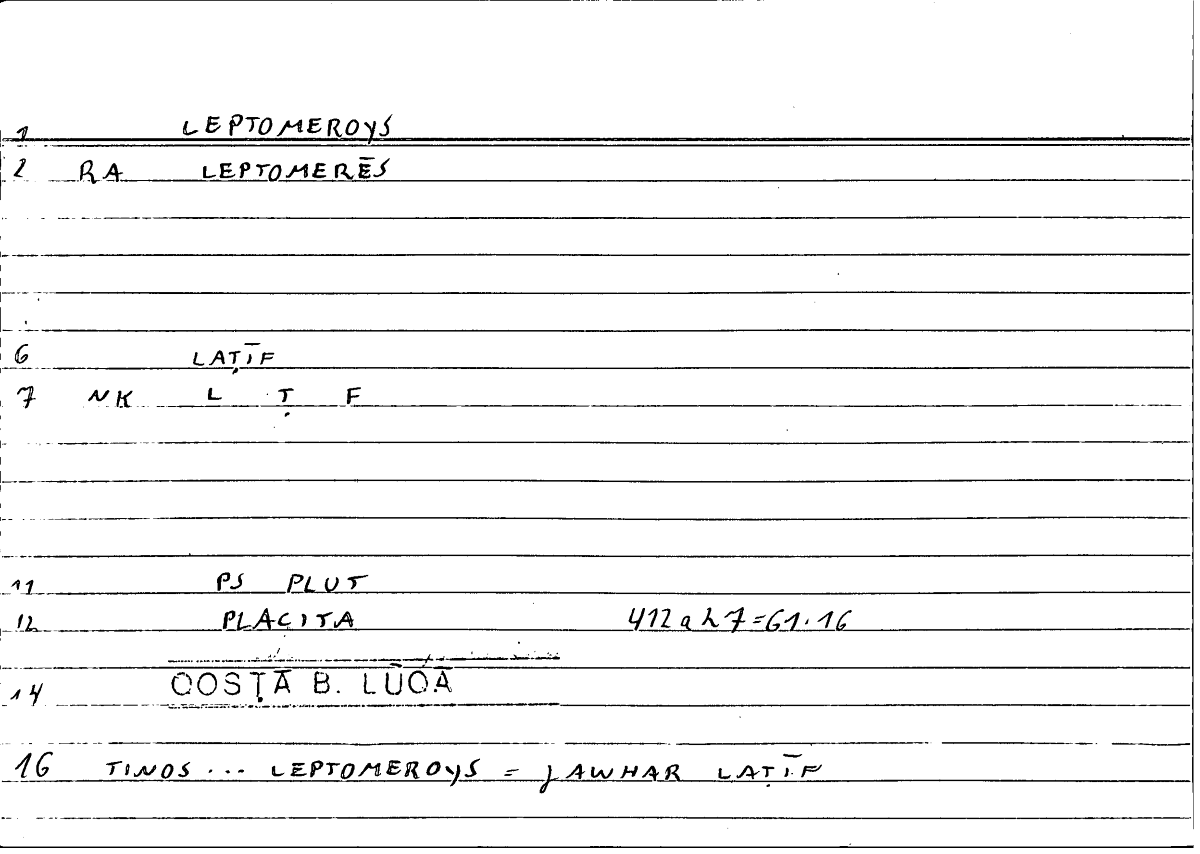 1 LEPTOMEROYS
2 RA LEPTOMERĒS
6 LAṬĪF
7 NK L Ṭ F
11 PS PLUT
12 PLACITA 412a27=61.16
14 QOSṬĀ B. LŪQĀ
16 TINOS... LEPTOMEROYS = JAWHAR LAṬĪF